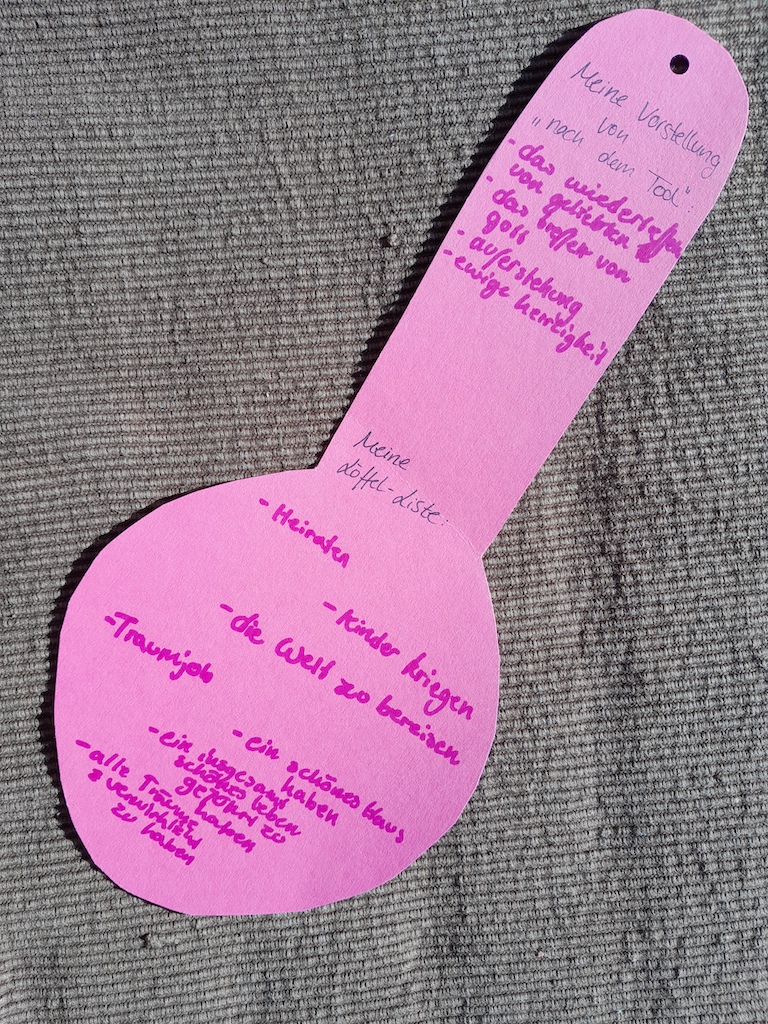 Meine Vorstellung
von
„nach dem Tod":
- das wiedertreffen
von geliebten
- das treffen von
gott
- auferstehung
- ewige herrligkeit
Meine
Löffel-Liste:
- Heiraten
- Kinder kriegen
- die Welt zu bereisen
- Traumjob
- ein schönes Haus
haben
- ein insgesamt
schönes leben
geführt zu
haben
- alle Träume
verwirklicht
zu haben